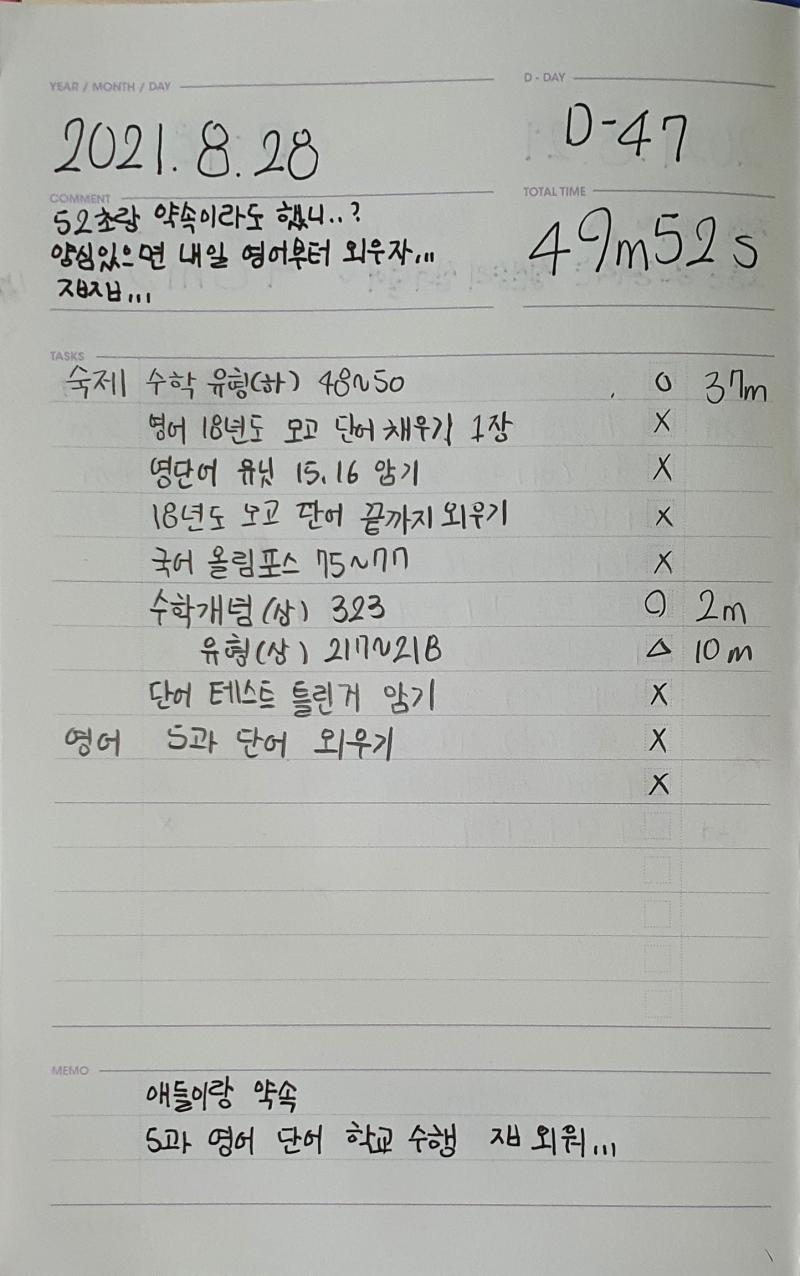 YEAR / MONTH / DAY
D - DAY
2021. 8. 28
D-47
COMMENT
TOTAL TIME
52초랑 약속이라도 했니..?
양심있으면 내일 영어부터 외우자...
49m52s
잽잽...
TASKS
숙제 수학 유형(하) 48~50 O 37m
영어 18년도 모고 단어 채우기 1장 X
영단어 유닛 15, 16 암기 X
18년도 모고 단어 끝까지 외우기 X
국어 올림포스 75~77 X
수학개념(상) 323 O 2m
유형(상) 217~218 △ 10m
단어 테스트 틀린거 암기 X
영어 5과 단어 외우기 X
X
MEMO
애들이랑 약속
5과 영어 단어 학교 수행 잽 외워...